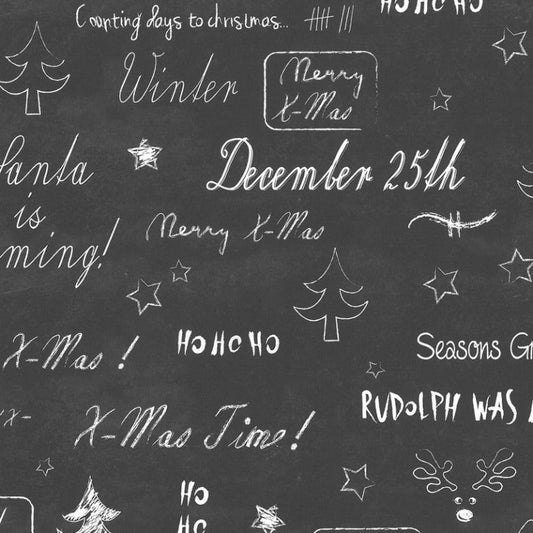 HO HO HO
Counting days to chrismas...
Winter
Merry
X-Mas
Santa
is
ming!
December 25th
Merry X-Mas
X-Mas !
HO HO HO
Seasons Gr
RUDOLPH WAS
X-
X-Mas Time!
HO
HO